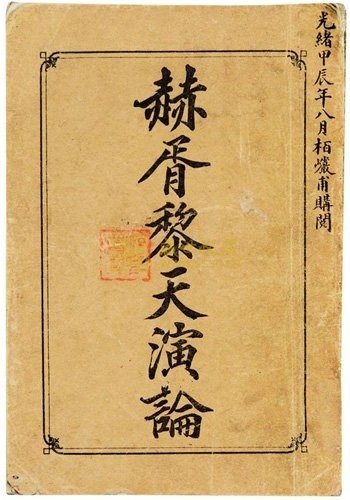 光緒甲辰年八月栢巗甫購閱
赫胥黎天演論